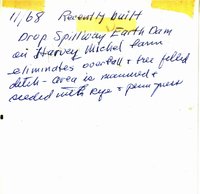 11/68 Recently built
Drop Spillway Earth Dam
on Harvey Michel farm
eliminates overfall & tree filled
ditch - area is manured &
seeded with rye &